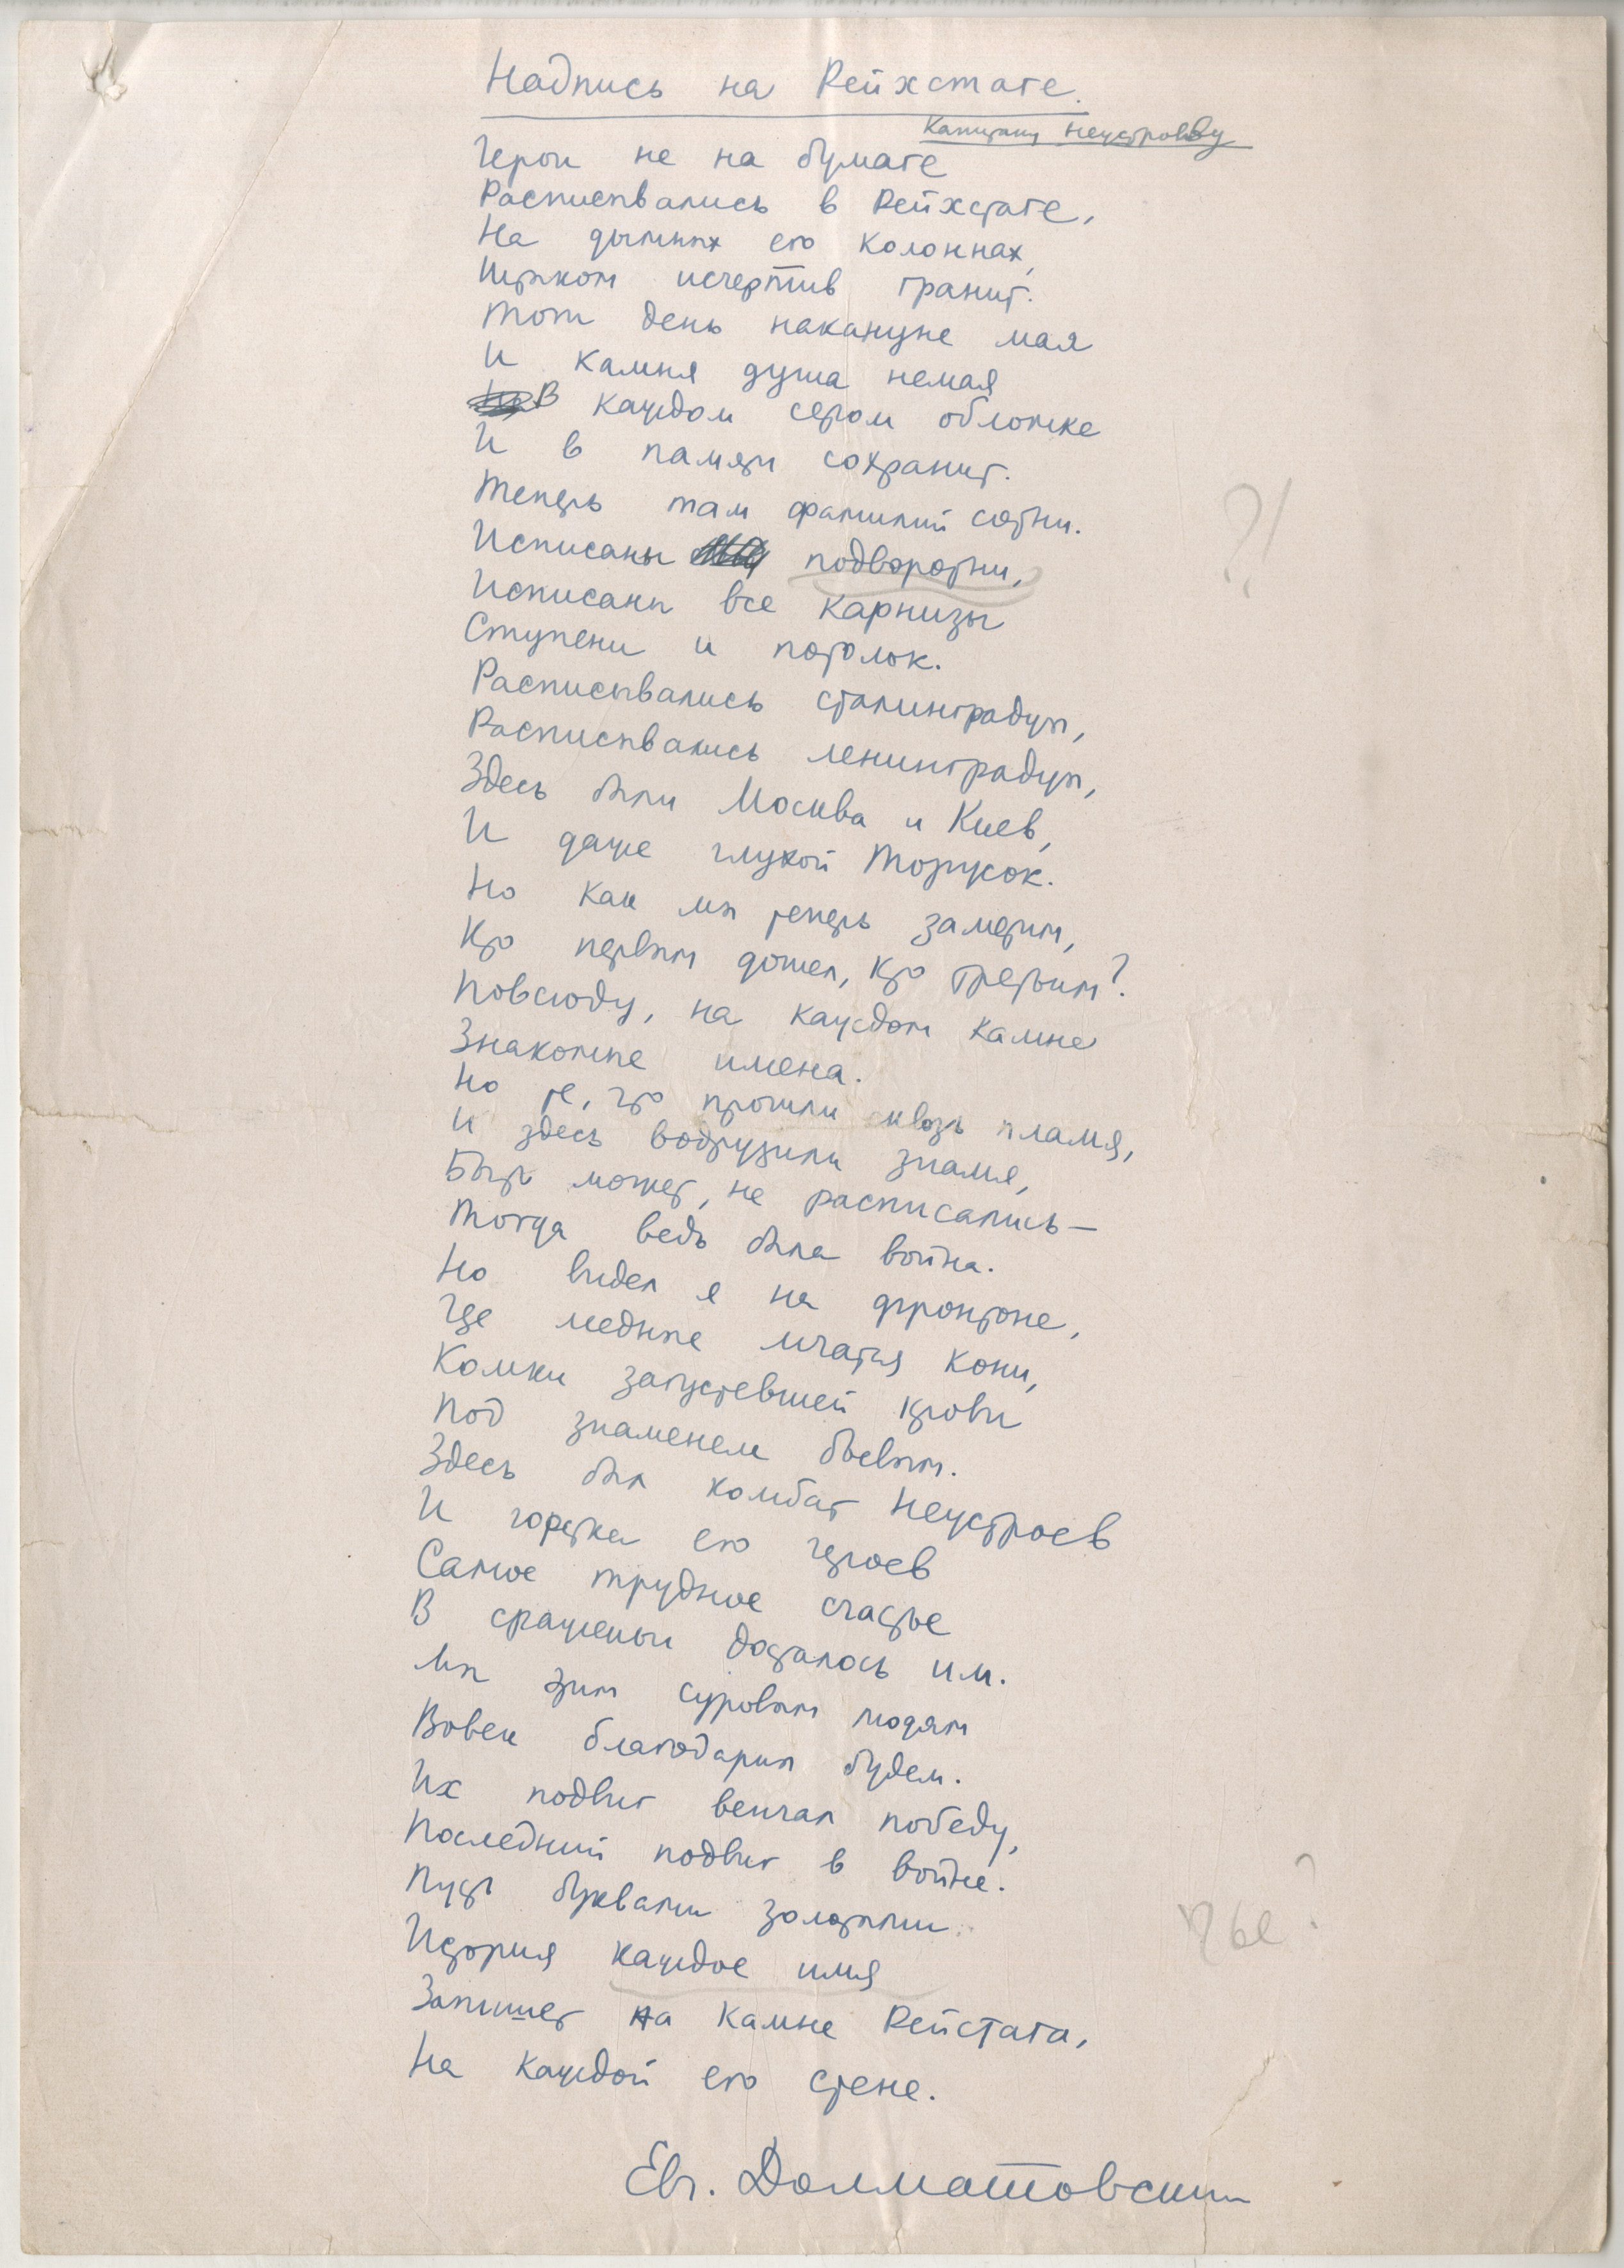 Надпись на Рейхстаге.
Капитану Неустроеву
Герои не на бумаге
Расписывались в Рейхстаге,
На дымных его колоннах,
Штыком исчертив гранит.
Тот день накануне мая
И камня душа немая
В каждом сером обломке
И в памяти сохранит.
Теперь там фамилий сотни.
?!
Исписаны подворотни,
Исписаны все карнизы
Ступени и потолок.
Расписывались сталинградцы,
Расписывались ленинградцы,
Здесь были Москва и Киев,
И даже глухой Торжок.
Но как мы теперь заметим,
Кто первым дошел, кто третьим?
Повсюду, на каждом камне
Знакомые имена.
Но те, что прошли сквозь пламя,
И здесь водрузили знамя,
Быть может, не расписались —
Тогда ведь была война.
Но видел я на фронтоне,
Где медные мчатся кони,
Комки загустевшей крови
Под знаменем боевым.
Здесь был комбат Неустроев
И горстка его героев
Самое трудное счастье
В сраженьи досталось им.
Мы этим суровым людям
Вовек благодарны будем.
Их подвиг венчал победу,
Последний подвиг в войне.
Пусть буквами золотыми
чье?
История каждое имя
Запишет на камне Рейстага,
На каждой его стене.
Евг. Долматовский